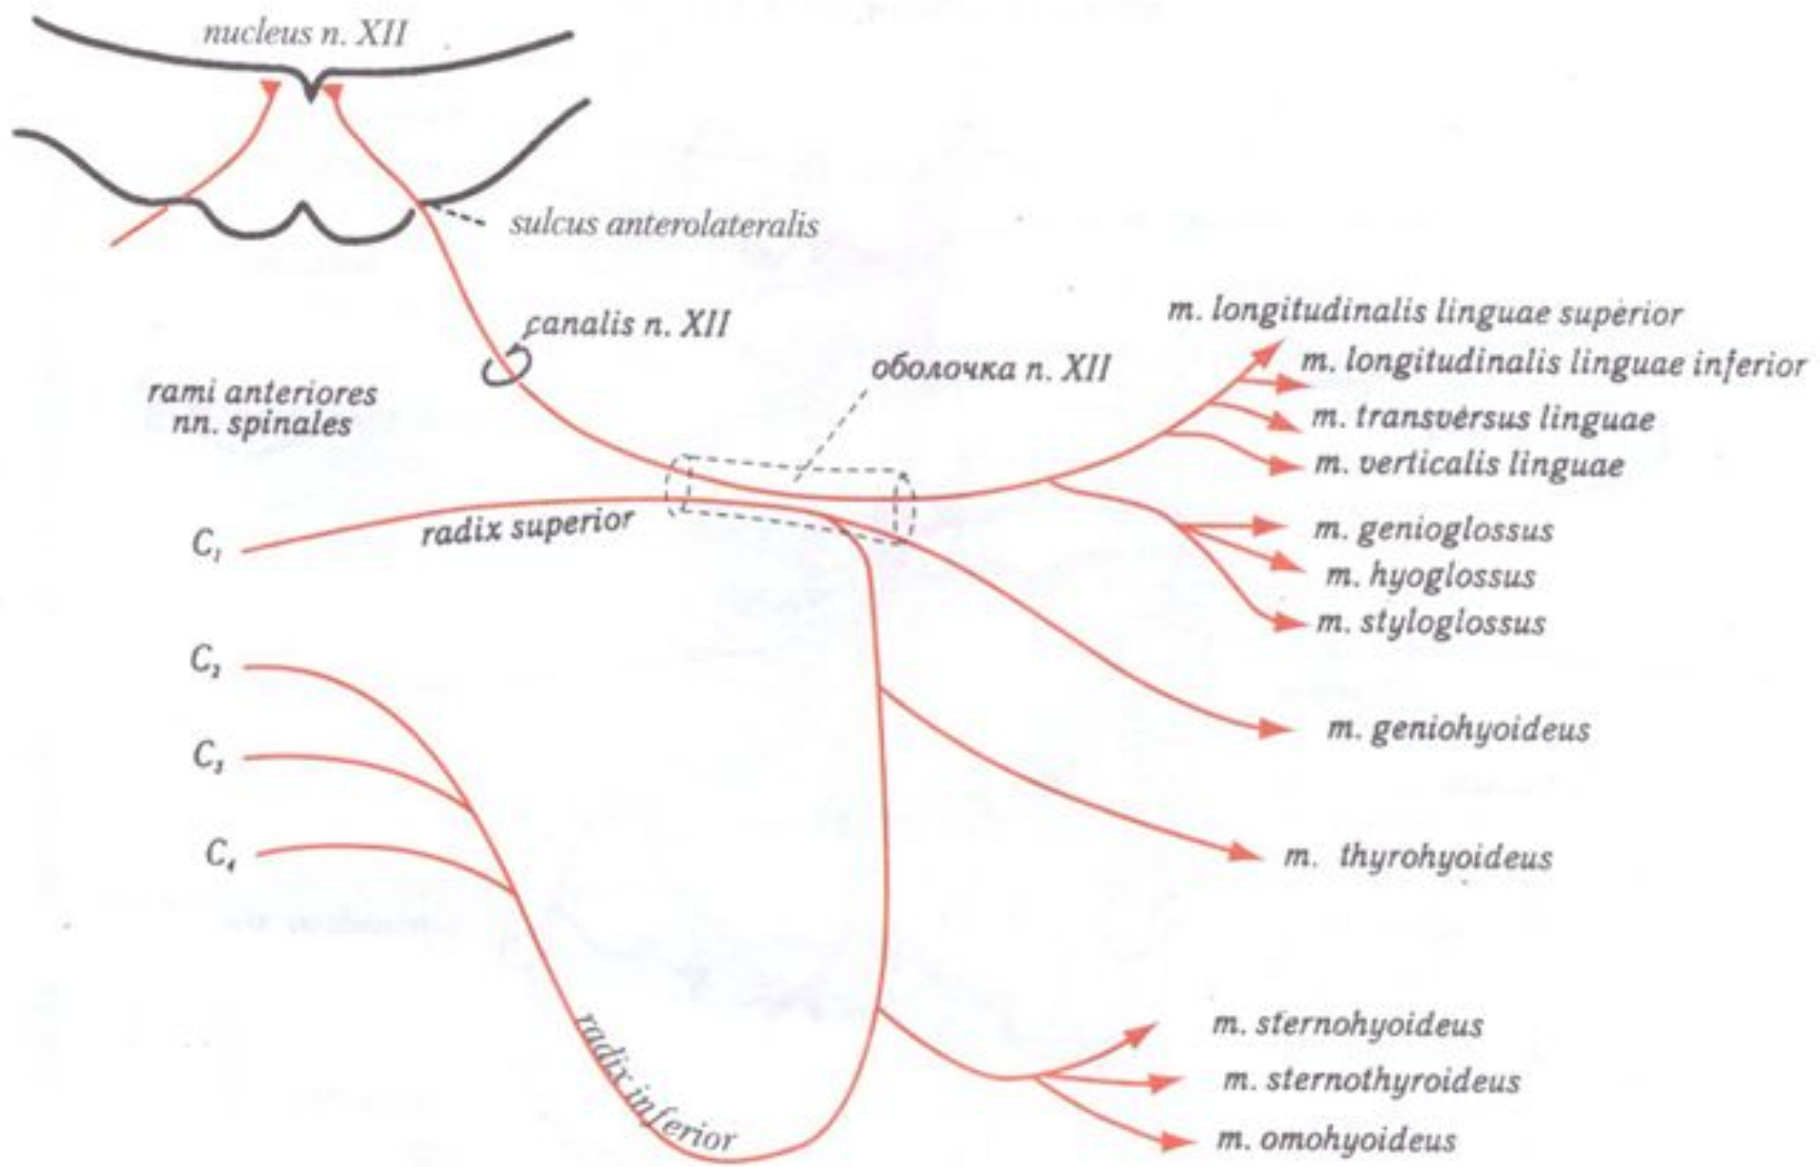 nucleus n. XII
sulcus anterolateralis
canalis n. XII
оболочка n. XII
rami anteriores
nn. spinales
radix superior
C₁
C₂
C₃
C₄
radix inferior
m. longitudinalis linguae superior
m. longitudinalis linguae inferior
m. transversus linguae
m. verticalis linguae
m. genioglossus
m. hyoglossus
m. styloglossus
m. geniohyoideus
m. thyrohyoideus
m. sternohyoideus
m. sternothyroideus
m. omohyoideus